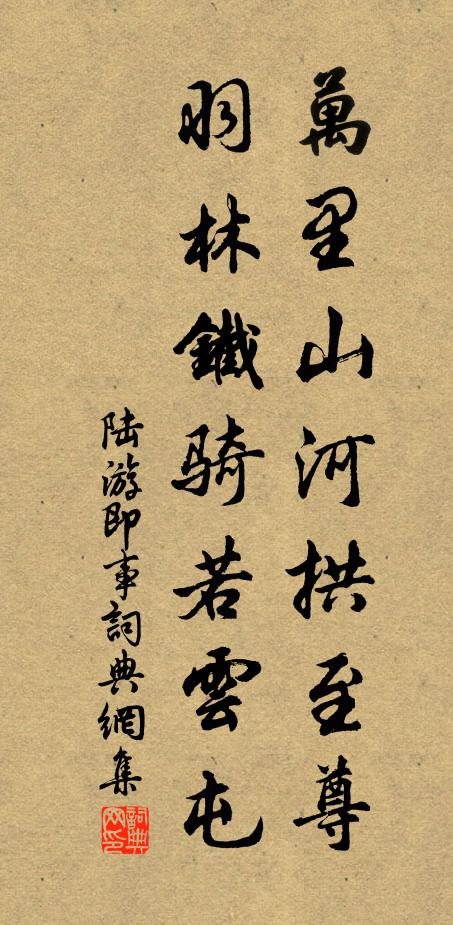 萬里山河拱至尊
羽林鐵騎若雲屯
陆游即事詞典網集
詞典网印